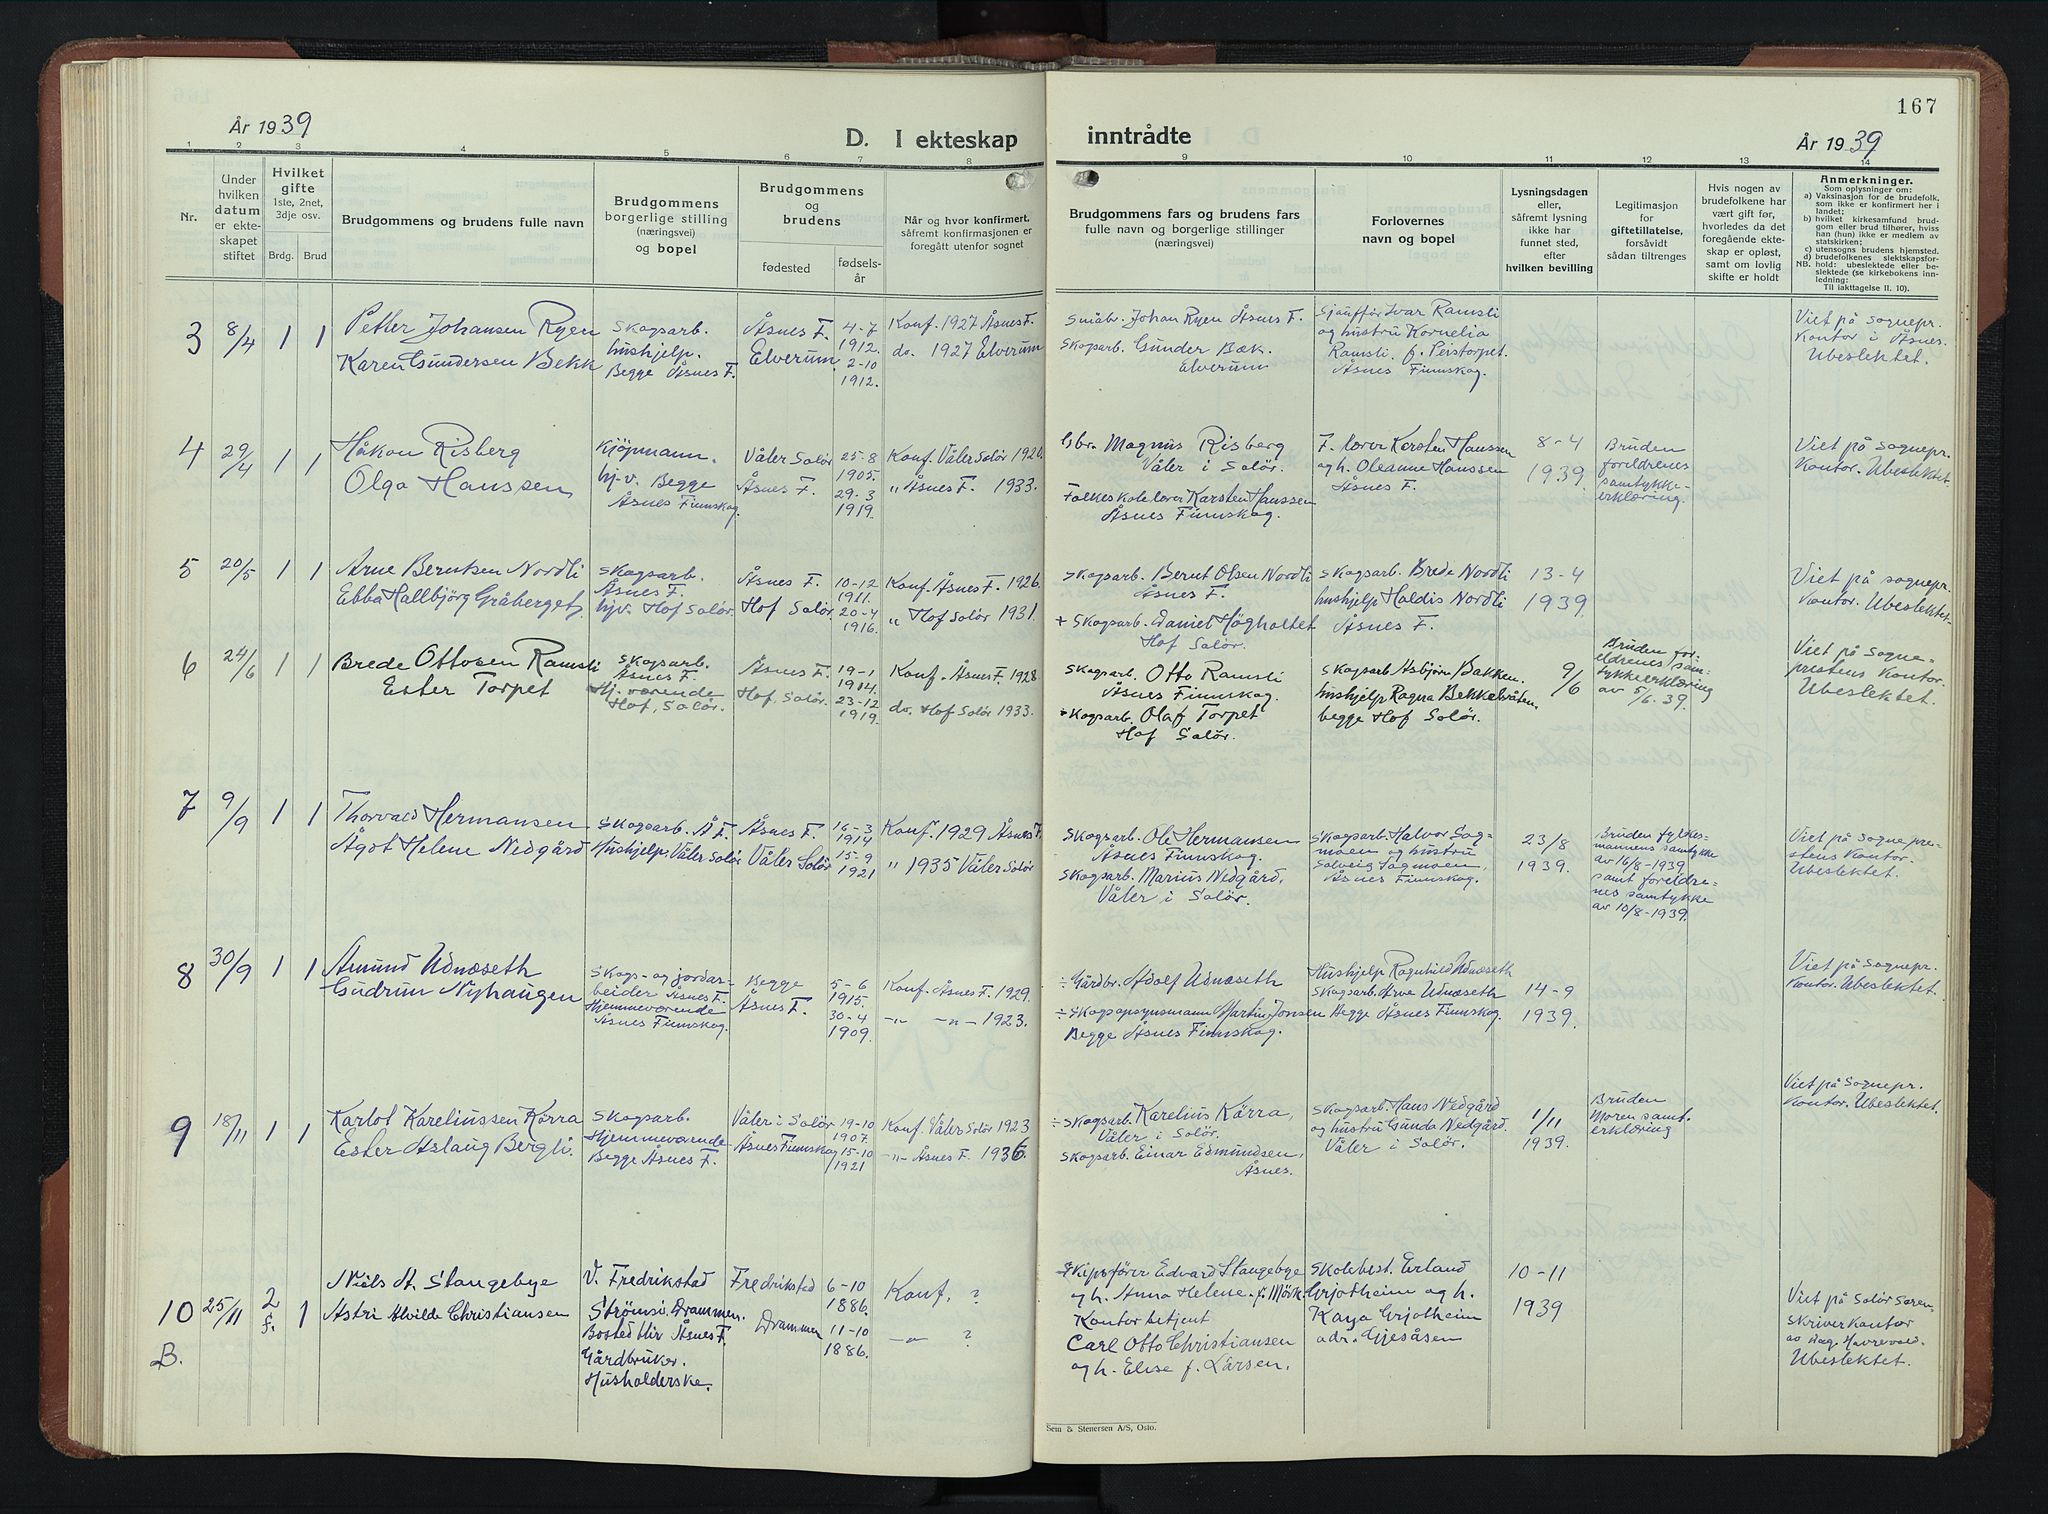 År 1939
D. I ekteskap
inntrådte
167
År 1939
1
2
3
4
5
6
7
8
9
10
11
12
13
14
Nr.
Under
hvilken
datum
er ekte-
skapet
stiftet
Hvilket
gifte
1ste, 2net,
3dje osv.
Brdg.
Brud
Brudgommens og brudens fulle navn
Brudgommens
borgerlige stilling
(næringsvei)
og bopel
Brudgommens
og
brudens
fødested
fødsels-
år
Når og hvor konfirmert,
såfremt konfirmasjonen er
foregått utenfor sognet
Brudgommens fars og brudens fars
fulle navn og borgerlige stillinger
(næringsvei)
Forlovernes
navn og bopel
Lysningsdagen
eller,
såfremt lysning
ikke har
funnet sted,
efter
hvilken bevilling
Legitimasjon
for
giftetillatelse,
forsåvidt
sådan tiltrenges
Hvis nogen av
brudefolkene har
vært gift før,
hvorledes da det
foregående ekte-
skap er opløst,
samt om lovlig
skifte er holdt
Anmerkninger.
Som oplysninger om:
a) Vaksinasjon for de brudefolk,
som ikke er konfirmert her i
landet;
b) hvilket kirkesamfund brud-
gom eller brud tilhører, hviss
han (hun) ikke er medlem av
statskirken;
c) utensogns brudens hjemsted.
d) brudefolkenes slektskapsfor-
NB. hold: ubeslektede eller be-
slektede (se kirkebokens inn-
ledning;
Til iakttagelse II. 10).
3
8/4
1
1
Petter Johansen Ryen
Karen Gundersen Bekk
Skogsarb.
hushjelp.
Begge Åsnes F.
Åsnes F.
Elverum
4-7
1912.
2-10
1912.
Konf. 1927 Åsnes F.
do. 1927 Elverum
Småbr. Johan Ryen Åsnes F.
Skogsarb. Gunder Bæk.
Elverum
Sjåuffør Ivar Ramsli
og hustru Kornelia
Ramsli f. Peistorpet.
Åsnes Finnskog.
Viet på sognepr.
Kontor i Åsnes.
Ubeslektet.
4
29/4
1
1
Håkon Risberg
Olga Hanssen
Kjøpmann.
hj.v. Begge
Åsnes Finnskog
Våler Solør
Åsnes F.
25-8
1905.
29-3
1919.
Konf. Våler Solør 1920.
" Åsnes F. 1933.
Gbr. Magnus Risberg
Våler i Solør.
Folkeskolelærer Karsten Hanssen
Åsnes Finnskog.
F. lærer Karsten Hanssen
og h. Oleanne Hanssen
Åsnes F.
8-4
1939.
Bruden
foreldrenes
samtykke-
erklæring.
Viet på sognepr.
Kontor. Ubeslektet.
5
20/5
1
1
Arne Berntsen Nordli
Ebba Hallbjørg Gråberget
Skogsarb.
Åsnes F.
hjv. Hof Solør.
Åsnes F.
Hof Solør
10-12
1911.
20-4
1916.
Konf. Åsnes F. 1926.
" Hof Solør 1931.
Skogsarb. Bernt Olsen Nordli
Åsnes F.
+ Skogsarb. Daniel Høgholtet
Hof Solør.
Skogsarb. Brede Nordli
hushjelp Haldis Nordli
Åsnes F.
13-4
1939
Viet på sognepr.
Kontor. Ubeslektet.
6
24/6
1
1
Brede Ottosen Ramsli
Ester Torpet
Skogsarb.
Åsnes F.
Hj. værende
Hof, Solør.
Åsnes F.
Hof, Solør.
19-1
1914.
23-12
1919.
Konf. Åsnes F. 1928.
do. Hof Solør 1933.
Skogarb. Otto Ramsli
Åsnes Finnskog.
Skogarb. Olaf Torpet
Hof Solør.
Skogsarb Asbjørn Bakken.
hushjelp Ragna Bekkelvåten.
begge Hof Solør.
9/6
Bruden for-
eldrenes sam-
tykkeerklæring
av 5/6. 39.
Viet på Sogne-
prestens Kontor.
Ubeslektet.
7
9/9
1
1
Thorvald Hermansen
Ågot Helene Nedgård
Skogsarb. Å. F.
Hushjelp, Våler Solør
Åsnes F.
Våler Solør
16-3
1914
15-9
1921
Konf. 1929 Åsnes F.
" 1935 Våler Solør
Skogsarb. Ole Hermansen
Åsnes Finnskog.
Skogsarb. Marius Nedgård,
Våler i Solør.
Skogsarb. Halvor Sag-
moen og hustru
Solveig Sagmoen,
Åsnes Finnskog.
23/8
1939.
Bruden fylkes-
mannens samtykke
av 16/8-1939
samt foreldre-
nes samtykke
av 10/8-1939.
Viet på Sogne pre-
stens Kontor.
Ubeslektet.
8
30/9
1
1
Amund Udnæseth
Gudrun Nyhaugen
Skogs- og jordar-
beider Åsnes F.
Hjemmeværende
Åsnes Finnskog.
Begge
Åsnes F.
5-6
1915.
30-4
1909.
Konf. Åsnes F. 1929.
-"- -"- 1923.
÷ Gårdbr. Adolf Udnæseth
÷ Skogsopsynsmann Martin Jonsen
Begge Åsnes Finnskog.
Hushjelp Ragnhild Udnæseth
Skogsarb. Arve Udnæseth
Begge Åsnes Finnskog.
14-9
1939.
Viet på Sognepr.
Kontor. Ubeslektet.
9
18/11
1
1
Karlot Kareliussen Kårra
Ester Aslaug Bergli.
Skogsarb.
Hjemmeværende
Begge Åsnes F.
Våler i Solør
Åsnes Finnskog
19-10
1907.
15-10
1921
Konf. Våler Solør 1923
-"- Åsnes F. 1936.
÷ Skogsarb. Karelius Kårra,
Våler i Solør.
Skogsarb. Einar Edmundsen,
Åsnes.
Skogsarb. Hans Nedgård
og hustru Gunda Nedgård.
Våler i Solør.
1/11
1939.
Bruden
Moren samt.
erklæring
Viet på Sognepr.
Kontor. Ubeslektet.
10
B.
25/11
2
f.
1
Niels A. Stangebye
Astri Alvilde Christiansen
V. Fredrikstad
Strømsø, Drammen.
Bosted blir Åsnes F.
Gårdbruker.
Husholderske.
Fredrikstad
Drammen
6-10
1886.
11-10
1886.
Konf. ?
-"- ?
Skipsfører Edvard Stangebye
og h. Anna Helene f. Mørk.
Kontorbetjent
Carl Otto Christiansen
og h. Elise f. Larsen.
Skolebest. Erland
Grjotheim og h.
Kaya Grjotheim
adr. Gjesåsen
10-11
1939
Viet på Solør Soren-
skriverkontor
av Dag. Havrevold.
Ubeslektet.
Sem & Stenersen A/S, Oslo.